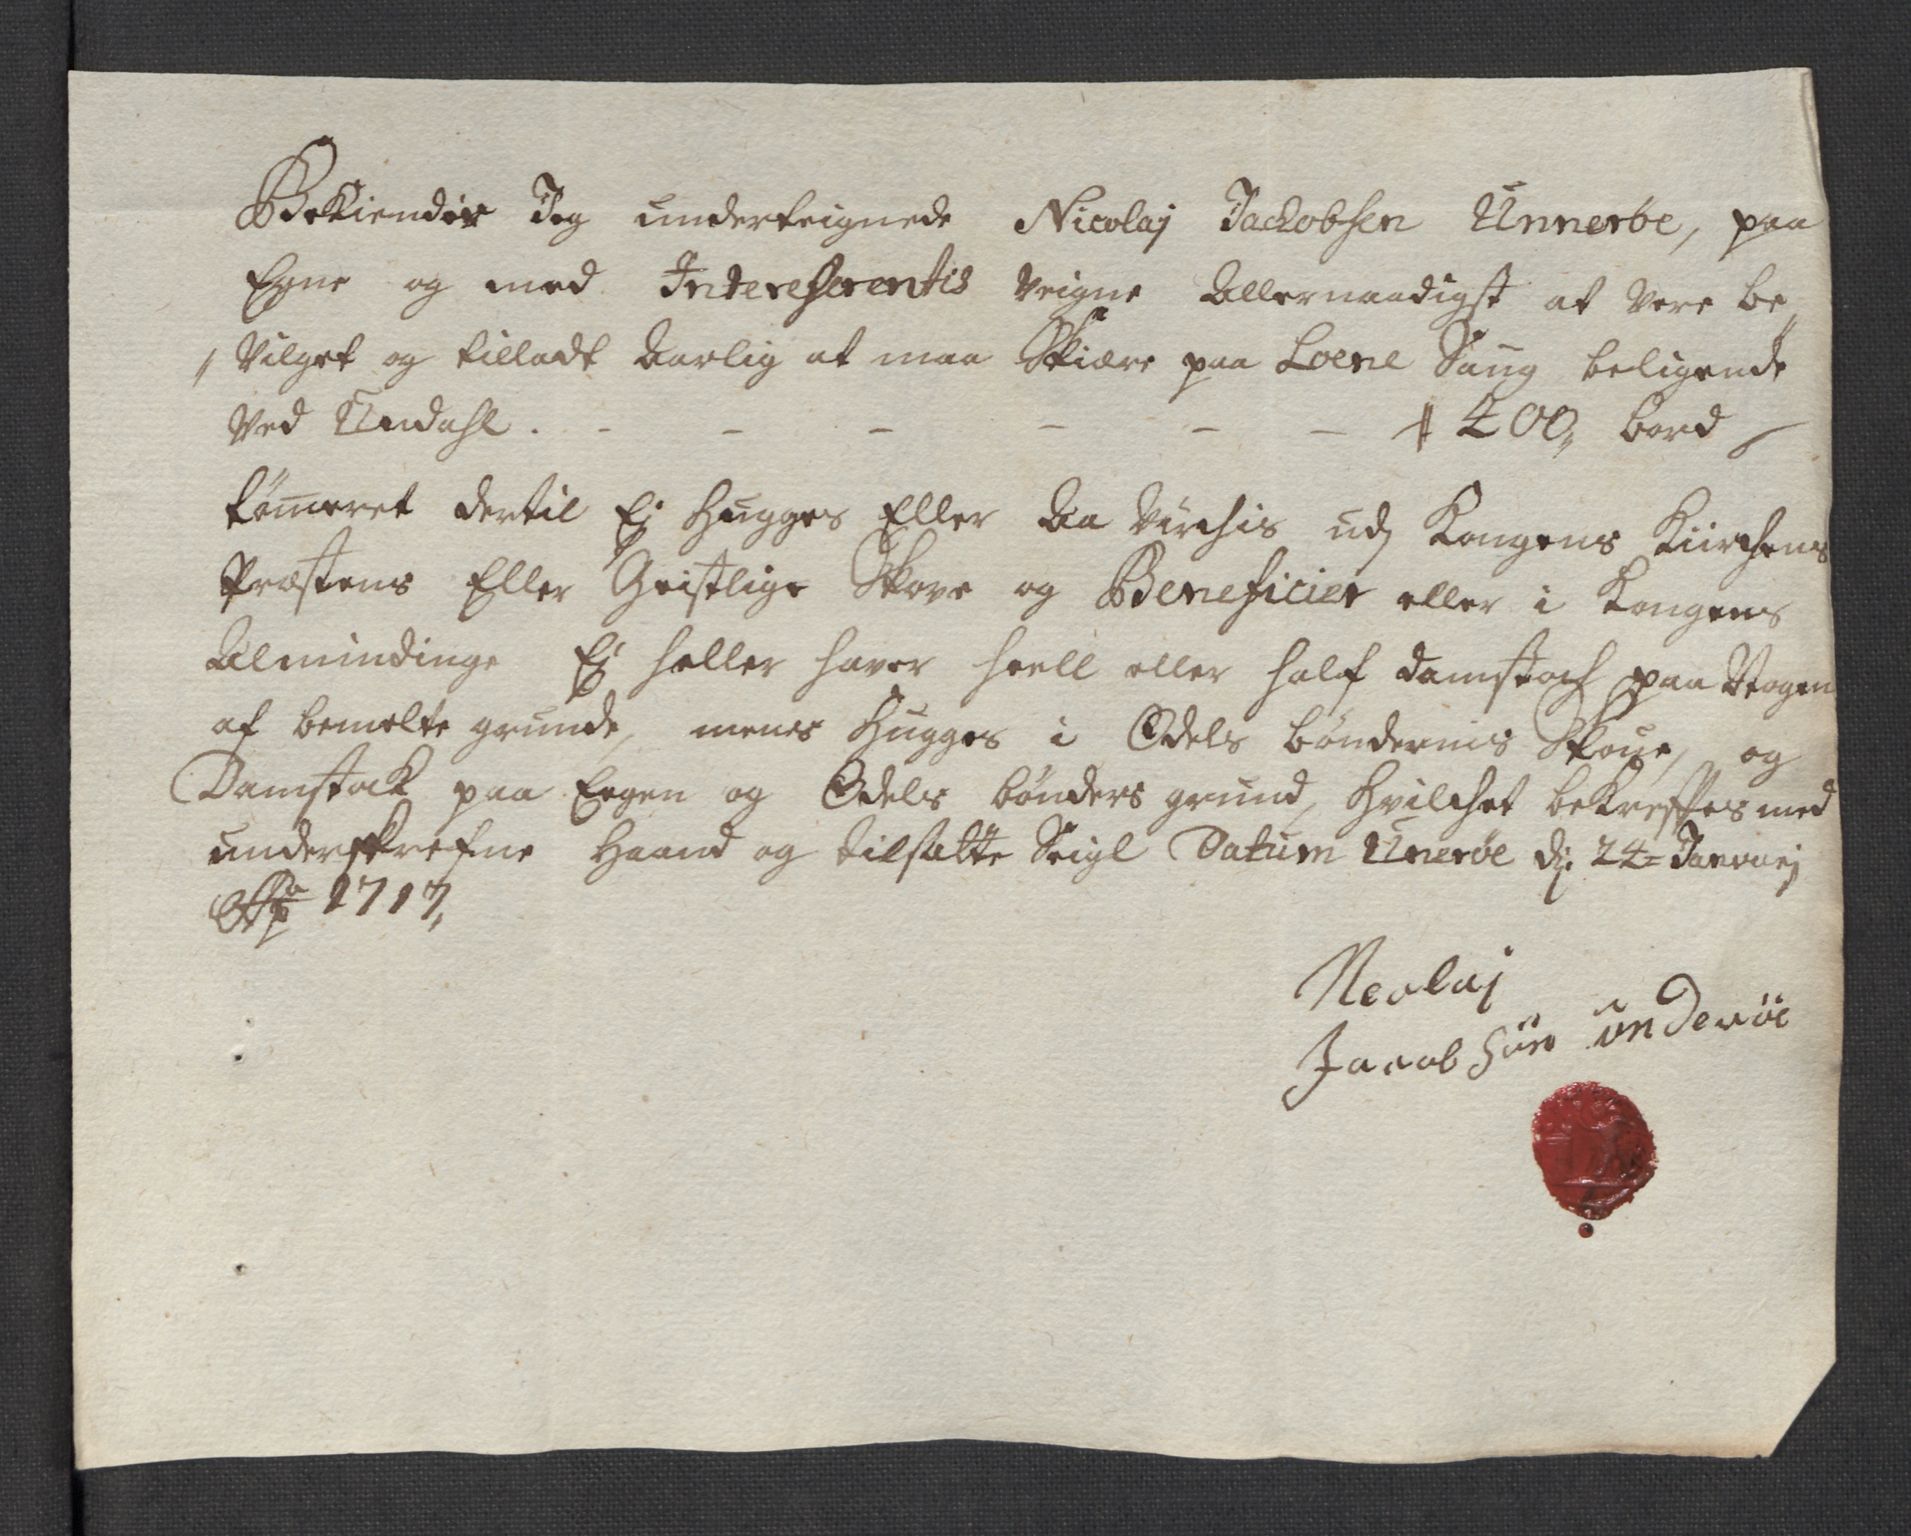 Bekiender Jeg underteignede Nicolaj Jackobsen Unneröe, paa
Egne og med Interesserentis Veigne Allernaadigst at Vere be
Vilget og tilladt Aarlig at maa Skiære paa Loene Saug beligende
Ved Undahl. - - - - - - 400, bord
tömeret dertil Ej Hugges Eller Aa Virchis udj Kongens Kiirchens
Præstens Eller Geistlige Skove og Beneficier eller i Kongens
Almindinge Ej heller haver heell eller half damstoch paa Nogen
af bemelte grunde, mens Hugges i Odels böndernis Skoue, og
Damstok paa Eegen og Odels bönders grund, Hvilchet bekreftes med
underskrefne Haand og tilsatte Seigl Datum Uneröe d: 24 = Januarj
Ao 1717,
Neolaj
Jacob Sön Underöe